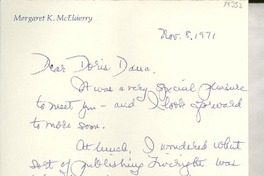 Margaret K. McElderry
Nov. 8, 1971
Dear Doris Dana,
It was a very special pleasure
to meet you - and I look forward
to more soon.
At lunch, I wondered what
sort of publishing Liveright was